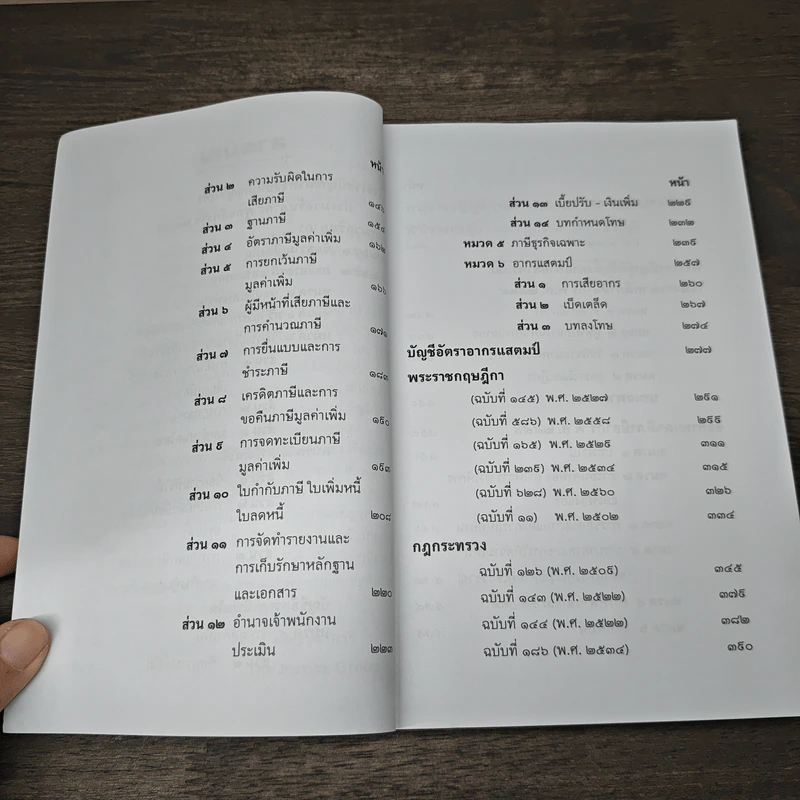 หน้า
ส่วน ๒ ความรับผิดในการ
เสียภาษี ๑๔๖
ส่วน ๓ ฐานภาษี ๑๕๔
ส่วน ๔ อัตราภาษีมูลค่าเพิ่ม ๑๖๒
ส่วน ๕ การยกเว้นภาษี
มูลค่าเพิ่ม ๑๖๖
ส่วน ๖ ผู้มีหน้าที่เสียภาษีและ
การคำนวณภาษี ๑๗๑
ส่วน ๗ การยื่นแบบและการ
ชำระภาษี
ส่วน ๘ เครดิตภาษีและการ
ขอคืนภาษีมูลค่าเพิ่ม ๑๙๐
ส่วน ๙ การจดทะเบียนภาษี
มูลค่าเพิ่ม ๑๙๓
ส่วน ๑๐ ใบกำกับภาษี ใบเพิ่มหนี้
ใบลดหนี้ ๒๐๘
ส่วน ๑๑ การจัดทำรายงานและ
การเก็บรักษาหลักฐาน
และเอกสาร ๒๒๐
ส่วน ๑๒ อำนาจเจ้าพนักงาน
ประเมิน ๒๒๓
หน้า
ส่วน ๑๓ เบี้ยปรับ - เงินเพิ่ม ๒๒๙
ส่วน ๑๔ บทกำหนดโทษ ๒๓๒
หมวด ๕ ภาษีธุรกิจเฉพาะ ๒๓๙
หมวด ๖ อากรแสตมป์ ๒๕๗
ส่วน ๑ การเสียอากร ๒๖๐
ส่วน ๒ เบ็ดเตล็ด ๒๖๗
ส่วน ๓ บทลงโทษ ๒๗๔
บัญชีอัตราอากรแสตมป์ ๒๗๗
พระราชกฤษฎีกา
(ฉบับที่ ๑๔๕) พ.ศ. ๒๕๒๗ ๒๙๑
(ฉบับที่ ๕๘๖) พ.ศ. ๒๕๕๘ ๒๙๙
(ฉบับที่ ๑๖๕) พ.ศ. ๒๕๒๙ ๓๑๑
(ฉบับที่ ๒๓๙) พ.ศ. ๒๕๓๔ ๓๑๕
(ฉบับที่ ๖๒๘) พ.ศ. ๒๕๖๐ ๓๒๖
(ฉบับที่ ๑๑) พ.ศ. ๒๕๐๒ ๓๓๔
กฎกระทรวง
ฉบับที่ ๑๒๖ (พ.ศ. ๒๕๐๙) ๓๔๕
ฉบับที่ ๑๔๓ (พ.ศ. ๒๕๒๒) ๓๗๙
ฉบับที่ ๑๔๔ (พ.ศ. ๒๕๒๒) ๓๘๒
ฉบับที่ ๑๘๖ (พ.ศ. ๒๕๓๔) ๓๙๐